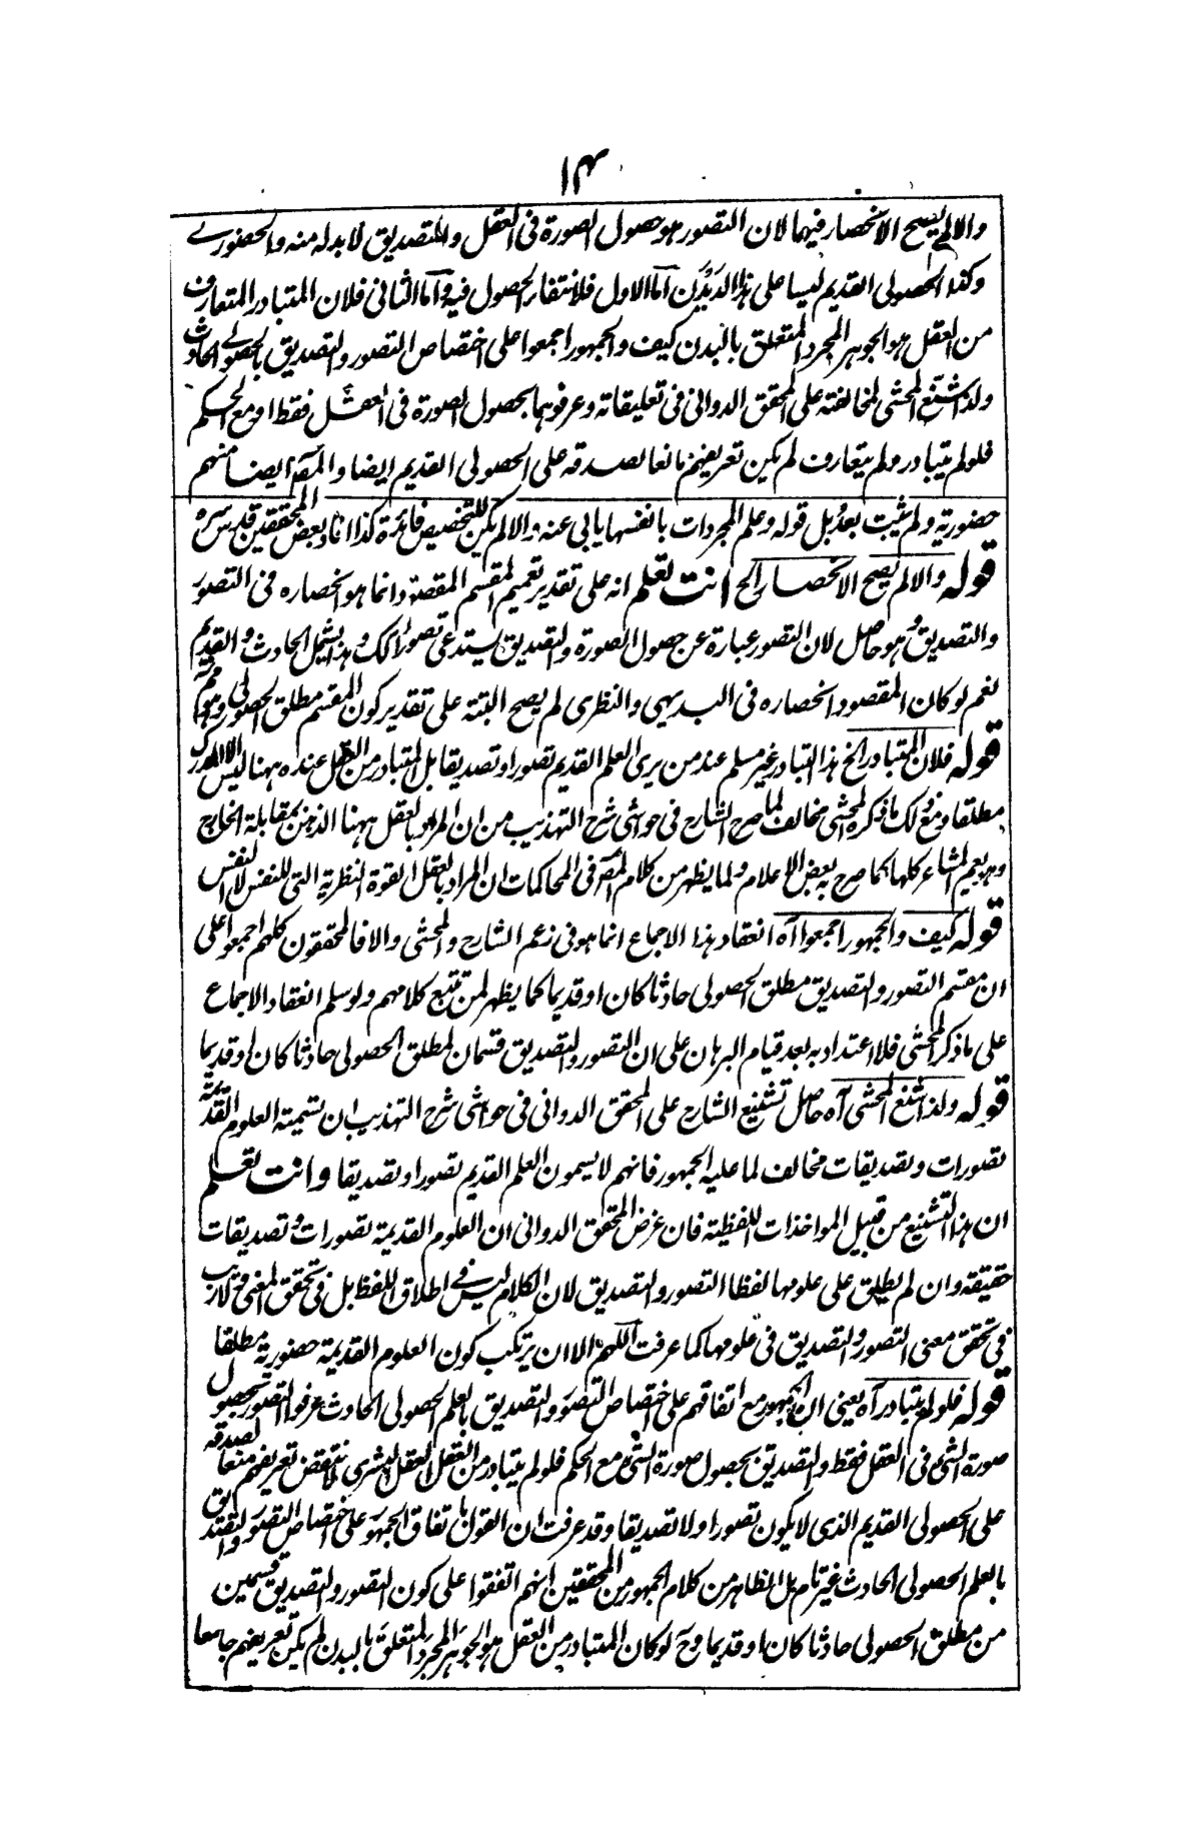 ١٤
والا لم يصح الانحصار فيهما لان التصور هو حصول الصورة فى العقل والتصديق لا بد له منه والحضورى
وكذا الحصولى القديم ليسا على هذا الديدن اما الاول فلانتفاء الحصول فيه واما الثانى فلان المتبادر المتعارف
من العقل هو الجوهر المجرد المتعلق بالبدن كيف والجمهور اجمعوا على اختصاص التصور والتصديق بالحصولى الحادث
ولذا شنع المحشى لمخالفته على المحقق الدوانى فى تعليقاته وعرفوهما بحصول الصورة فى العقل فقط او مع الحكم
فلو لم يتبادر ولم يتعارف لم يكن تعريفهم مانعا لصدقه على الحصولى القديم ايضا والمص ايضا منهم
حضورية ولم يثبت بعد بل قوله وعلم المجردات بانفسها يابى عنه والا لم يكن للتخصيص فائدة كذا افاد بعض المحققين قدس سره
قوله والا لم يصح الانحصار الخ انت تعلم انه على تقدير تعميم المقسم المقصود انما هو انحصاره فى التصور
والتصديق وهو حاصل لان التصور عبارة عن حصول الصورة والتصديق يستدعى تصورا كك وهذا يشمل الحادث والقديم
نعم لو كان المقصود انحصاره فى البديهى والنظرى لم يصح البتة على تقدير كون المقسم مطلق الحصولى
قوله فلان المتبادر الخ هذا التبادر غير مسلم عند من يرى العلم القديم تصورا وتصديقا بل المتبادر من العقل عنده ههنا ليس الا المدرك
مطلقا ومع ذلك ما ذكره المحشى مخالف لما صرح الشارح فى حواشى شرح التهذيب من ان المراد بالعقل ههنا الذهن بمقابلة الخارج
وهو يعم المشاعر كلها كما صرح به بعض الاعلام ولما يظهر من كلام المص فى المحاكمات ان المراد بالعقل القوة النظرية التى للنفس لا النفس
قوله كيف والجمهور اجمعوا آه انعقاد هذا الاجماع انما هو فى زعم الشارح والمحشى والا فالمحققون كلهم اجمعوا على
ان مقسم التصور والتصديق مطلق الحصولى حادثا كان او قديما كما يظهر لمن تتبع كلامهم ولو سلم انعقاد الاجماع
على ما ذكر المحشى فلا اعتداد به بعد قيام البرهان على ان التصور والتصديق قسمان لمطلق الحصولى حادثا كان او قديما
قوله ولذا شنع المحشى آه حاصل تشنيع الشارح على المحقق الدوانى فى حواشى شرح التهذيب ان تسمية العلوم القديمة
تصورات وتصديقات مخالف لما عليه الجمهور فانهم لا يسمون العلم القديم تصورا وتصديقا وانت تعلم
ان هذا التشنيع من قبيل المواخذات اللفظية فان غرض المحقق الدوانى ان العلوم القديمة تصورات وتصديقات
حقيقة وان لم يطلق على علومها لفظا التصور والتصديق لان الكلام ليس فى اطلاق اللفظ بل فى تحقق المعنى فح لا ريب
فى تحقق معنى التصور والتصديق فى علومها كما عرفت اللهم الا ان يرتكب كون العلوم القديمة حضورية مطلقا
قوله فلو لم يتبادر آه يعنى ان الجمهور مع اتفاقهم على اختصاص التصور والتصديق بالعلم الحصولى الحادث عرفوا التصور بحصول
صورة الشئ فى العقل فقط والتصديق بحصول صورة الشئ مع الحكم فلو لم يتبادر من العقل العقل البشرى لانتقض تعريفهم منعا لصدقه
على الحصولى القديم الذى لا يكون تصورا ولا تصديقا وقد عرفت ان القول باتفاق الجمهور على اختصاص التصور والتصديق
بالعلم الحصولى الحادث غير تام بل الظاهر من كلام الجمهور من المحققين انهم اتفقوا على كون التصور والتصديق قسمين
من مطلق الحصولى حادثا كان او قديما وح لو كان المتبادر من العقل هو الجوهر المجرد المتعلق بالبدن لم يكن تعريفهم جامعا